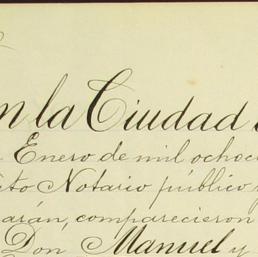 n la Ciudad
Enero de mil ochoc
to Notario público
arán, comparecieron
Don Manuel y